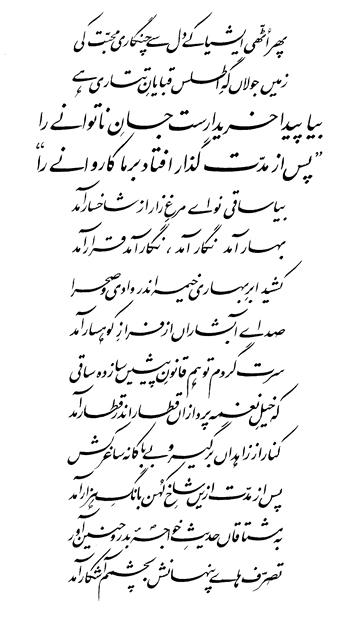 پھر اُٹھّی ایشیا کے دل سے چنگاری محبّت کی
زمیں جولاں گہِ اطلس قبایانِ تتاری ہے
بیا پیدا خریدارست جانِ ناتوانے را
”پس از مدّت گذار افتاد برما کاروانے را“
بیا ساقی نوائے مرغِ زار از شاخسار آمد
بہار آمد نگار آمد ، نگار آمد قرار آمد
کشید ابرِ بہاری خیمہ اندر وادی و صحرا
صدائے آبشاراں از فرازِ کوہسار آمد
سرت گردم تو ہم قانونِ پیشیں ساز دہ ساقی
کہ خیلِ نغمہ پردازاں قطار اندر قطار آمد
کنار از زاہداں برگیر و بے باکانہ ساغر کش
پس از مدّت ازیں شاخِ کہن بانگِ ہزار آمد
بہ مشتاقاں حدیثِ خواجۂ بدر و حنین آور
تصرّف ہائے پنہانش بچشمم آشکار آمد